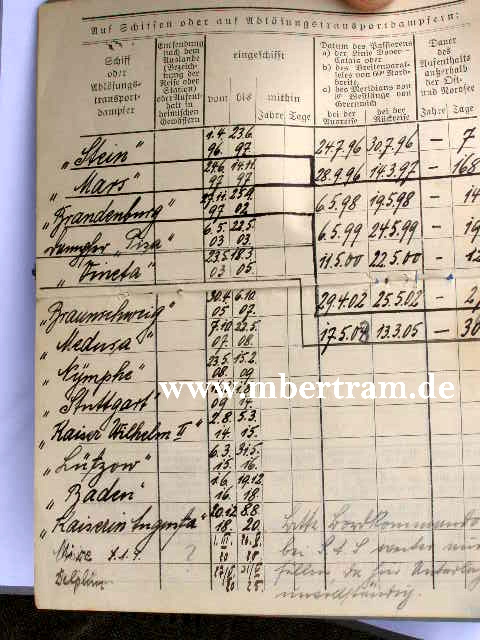 Auf Schiffen oder auf Ablösungstransportdampfern:
Schiff oder Ablösungs-transport-dampfer
Entsendung nach dem Auslande (Bezeichnung der Reise oder Station) oder Aufenthalt in heimischen Gewässern
eingeschifft
vom bis mithin Jahre Tage
Datum des Passierens
a) der Linie Dover-Calais oder
b) des Breitenparallels von 60° Nordbreite,
c) des Meridians von 6° Westlänge von Greenwich
bei der Ausreise bei der Rückreise
Dauer des Aufenthalts außerhalb der Ost- und Nordsee
Jahre Tage
„Stein" 1.4. 96. 23.6. 97 24.7.96 30.7.96 — 7
„Mars" 24.6. 97 14.11. 97 28.9.96 14.3.97 — 168
„Brandenburg" 97 25.9. 02 6.5.98 19.5.98 — 14
Dampfer „Pisa" 6.5. 03 22.5. 03. 6.5.99 24.5.99 — 19
„Vineta" 23.5. 03 18.3. 05. 11.5.00 22.5.00 — 12
„Braunschweig" 30.4. 05 6.10. 07. 29.4.02 25.5.02 —
„Medusa" 7.10. 07. 22.5. 08. 17.5.04 13.3.05 — 30
„Nymphe" 23.5. 08. 15.2. 09
„Stuttgart" 09 14.
„Kaiser Wilhelm II" 2.8. 14. 5.3. 15.
„Lützow" 6.3. 15. 31.5. 16.
„Baden" 1.6. 16. 19.12. 18.
„Kaiserin Augusta" 20.12. 18. 8.8. 20.
www.mbertram.de
Bitte Bordkommando
bei
Delphin
unvollständig.